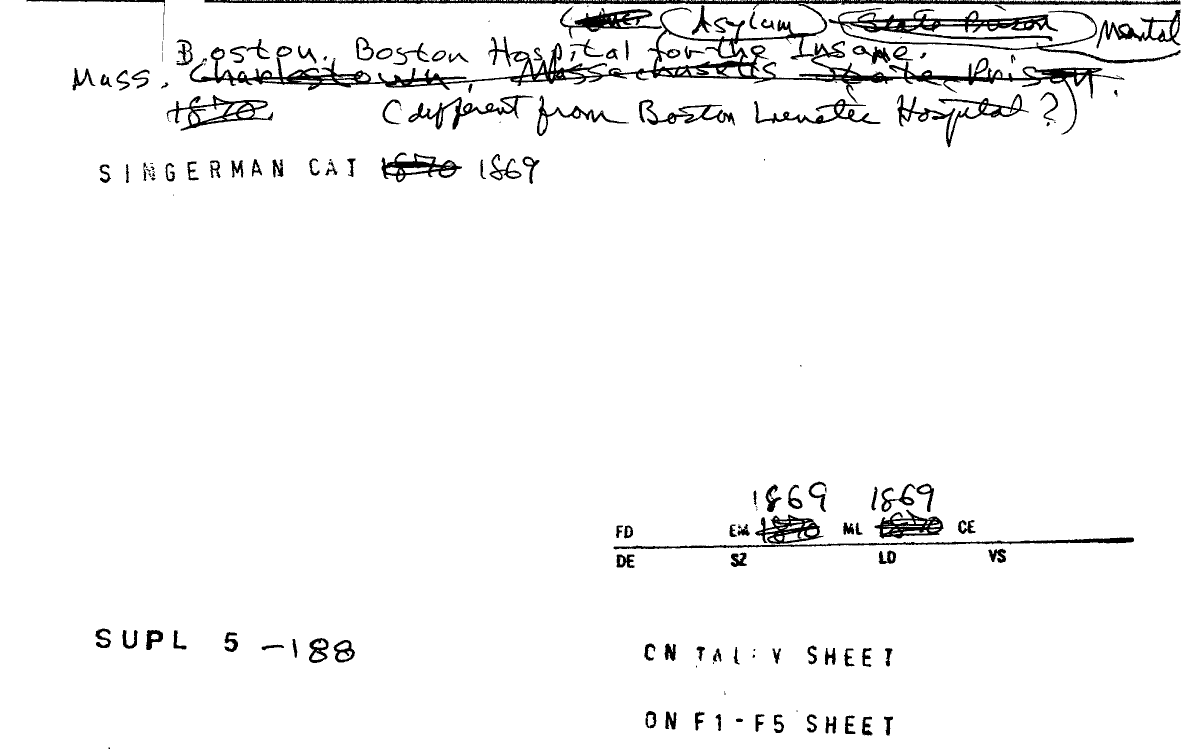 Asylum State Prison Mental
Boston. Boston Hospital for the Insane.
Mass. Charlestown, Massachusetts State Prison.
1870. (different from Boston Lunatic Hospital?)
SINGERMAN CAT 1870 1869
1869 1869
FD EM 1870 ML 1870 CE
DE SZ LD VS
SUPL 5 -188
ON TALLY SHEET
ON F1-F5 SHEET